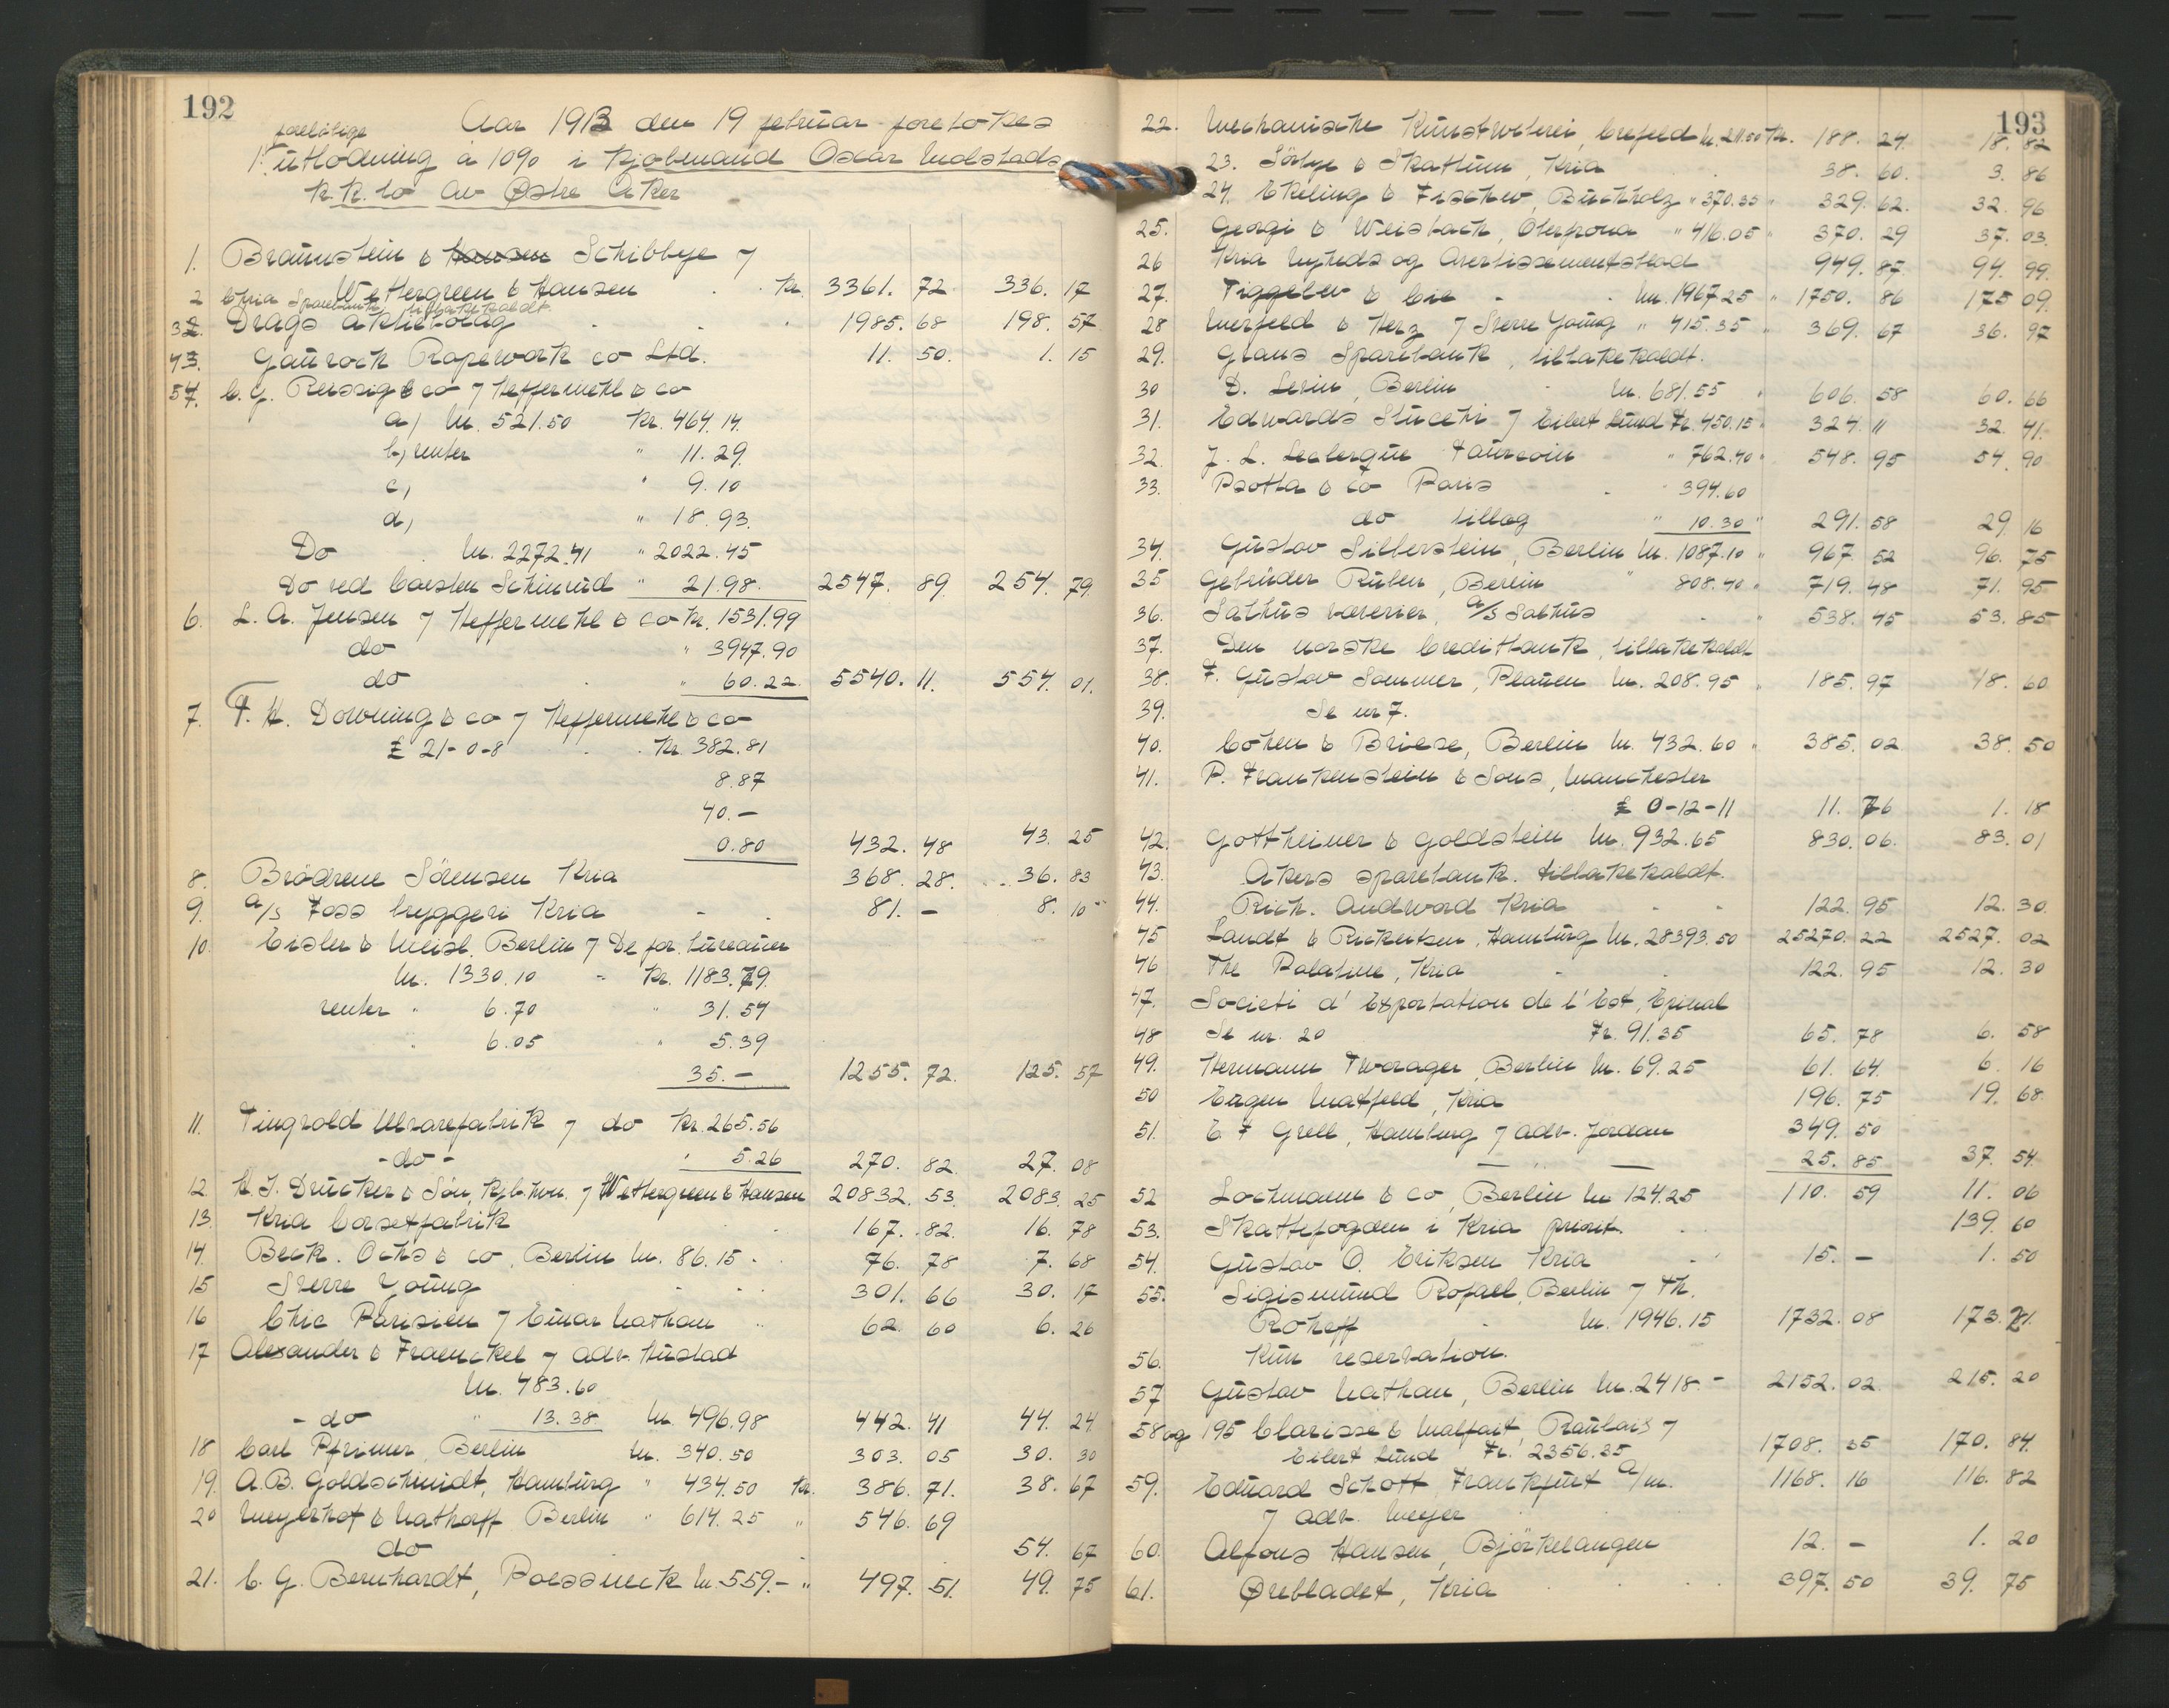 192
Aar 1913 den 19 februar foretokes
foreløbige
1. utlodning à 10% i Kjøbmand Oscar Molstads
k.k. bo av Østre Aker
1. Braunstein & Hansen Schibbye 7
Wettergreen & Hansen Kr. 3361.72. 336.17
2 Chria Sparebank tilbakekaldt.
32. Drags aktiebolag 1985.68 198.57
43. Gourock Ropework co Ltd. 11.50. 1.15
54. C. G. Reissig & co 7 Heffermehl & co
a) M. 521.50 Kr. 464.14.
b) renter " 11.29.
c) " 9.10
d) " 18.93.
Do M. 2272.41 " 2022.45
Do ved Carsten Schmud " 21.98. 2547.89. 254.79.
6. L. A. Jensen 7 Heffermehl & co Kr. 1531.99
do " 3947.90
do " 60.22. 5540.11. 554.01.
7. F. H. Downing & co 7 Heffermehl & co
£ 21-0-8 Kr. 382.81
8.87
40.-
0.80 432.48 43.25
8. Brödrene Sörensen Kria 368.28. 36.83
9. a/s Foss bryggeri Kria 81.- 8.10
10. Eisler & Meisl. Berlin 7 De for. bureauer
M. 1330.10 - Kr. 1183.79.
renter " 6.70 " 31.54
" 6.05 " 5.39
35.- 1255.72. 125.57
11. Tingvold Ulvarefabrik 7 do Kr. 265.56
- do - " 5.26 270.82. 27.08
12. H. J. Drucker & Sön, Kjbhvn. 7 Wettergreen & Hansen 20832.53. 2083.25
13. Kria Corsetfabrik 167.82. 16.78
14. Beck. Ochs & co, Berlin M. 86.15 76.78 7.68
15 Sverre Young 301.66 30.17
16 Chic Parisien 7 Einar Nathan 62.60 6.26
17 Alexander & Fraenckel 7 adv. Hustad
M. 483.60
- do " 13.38 M. 496.98 442.41 44.24.
18 Carl Pfrimer, Berlin M. 340.50 303.05 30.30
19. A.B. Goldschmidt, Hamburg " 434.50 Kr. 386.71. 38.67
20 Meyerhof & Nathorff Berlin " 614.25 " 546.69
do 54.67
21. C. G. Bernhardt, Poessneck M. 559.- " 497.51. 49.75
193
22. Mechanische Kunstweberei, Crefeld M. 211.50 Kr. 188.24. 18.82
23. Sörbye & Skattum, Kria 38.60. 3.86
24. Ekeling & Fischer, Buchholz " 370.35 " 329.62. 32.96
25. Georgi & Weisbach, Oterfrona " 416.05 " 370.29 37.03.
26 Kria Nyheds og Avertissementsblad 949.87. 94.99.
27. Tiggeler & Cie - M. 1967.25 " 1750.86 175.09.
28 Merfeld & Herz 7 Sverre Young " 415.35 " 369.67 36.97
29. Grans Sparebank, tilbakekaldt.
30 D. Levin, Berlin M. 681.55 " 606.58 60.66
31. Edwards Stucchi 7 Eilert Lund Fr. 450.15 " 324." 32.41.
32. J. L. Leclerque Tourcoin " 762.40 " 548.95 54.90
33. Psotta & co Paris " 394.60
do tillæg " 10.30 " 291.58 29.16
34. Gustav Silberstein, Berlin M. 1087.10 " 967.52 96.75
35 Gebrüder Ruben, Berlin " 808.40 " 719.48 71.95
36. Salhus væverier, A/S Salhus 538.45 53.85
37. Den norske Creditbank, tilbakekaldt
38. F. Gustav Sommer, Plauen M. 208.95 185.97 18.60
39. Se nr 7.
40. Cohen & Briese, Berlin M. 432.60 " 385.02 38.50
41. P. Frankenstein & Sons, Manchester
£ 0-12-11 11.76 1.18
42. Gottheimer & Goldstein M. 932.65 830.06. 83.01
43. Akers sparebank. tilbakekaldt.
44. Rich. Andvord Kria - - 122.95 12.30.
45 Landt & Rickertsen, Hamburg M. 28393.50 25270.22 2527.02
46 The Palatine, Kria - 122.95 12.30
47. Societi d' Exportation de l' Est, Epinal
48 Se nr. 20 Fr. 91.35 65.78 6.58
49. Hermann Tworager, Berlin M. 69.25 61.64. 6.16
50 Eugen Matfeld, Kria 196.75 19.68.
51. E F Grell, Hamburg 7 adv. Jordan 349.50
— " — 25.85 37.54.
52 Lochmann & co, Berlin M 124.25 110.59 11.06
53. Skattefogden i Kria priorit. 139.60
54. Gustav O. Eriksen Kria - 15.- 1.50
55. Sigismund Rofael, Berlin 7 Th.
Rohoff - M. 1946.15 1732.08 173.21.
56. Kun reservation.
57 Gustav Nathan, Berlin M. 2418.- 2152.02. 215.20
58 og 195 Clarisse & Malfait, Roubais 7
Eilert Lund Fr. 2356.25 1708.35 170.84.
59. Eduard Schott Frankfurt a/m. 1168.16 116.82
7 adv. Meyer
60. Alfons Hansen, Björkelangen 12.- 1.20
61. Ørebladet, Kria 397.50 39.75